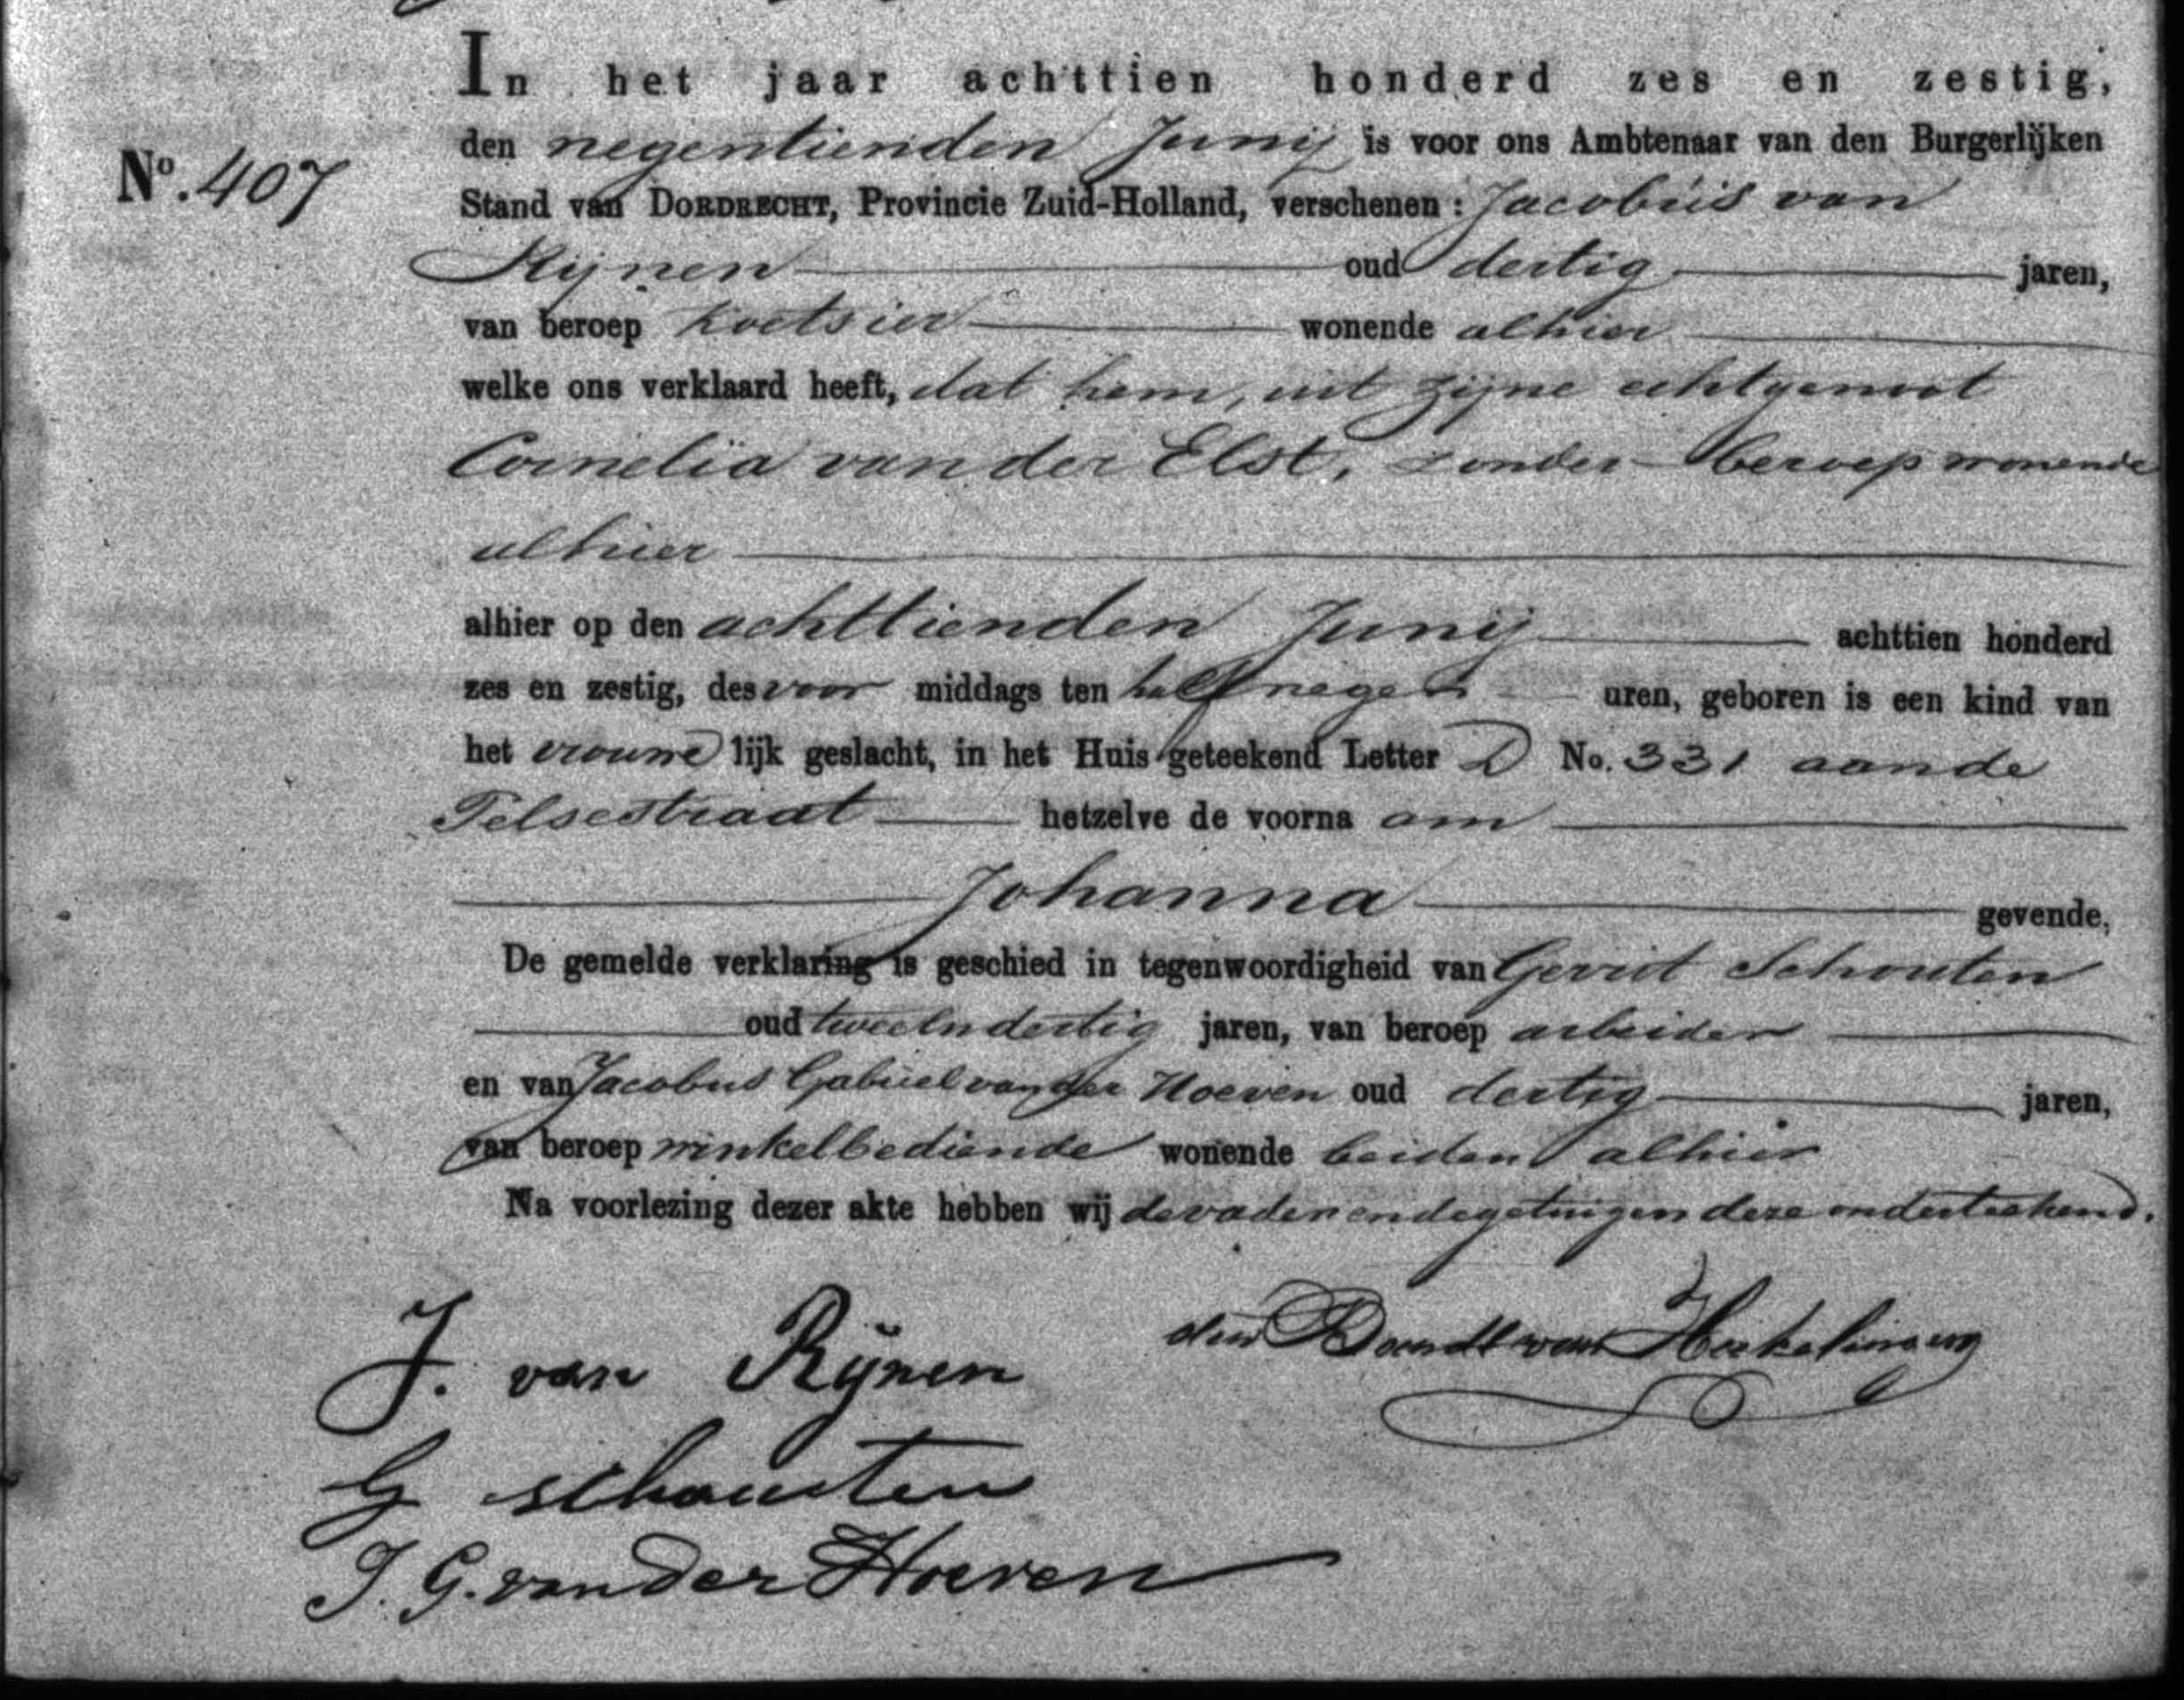 In het jaar achttien honderd zes en zestig,
den negentienden Junij is voor ons Ambtenaar van den Burgerlijken
No. 407
Stand van DORDRECHT, Provincie Zuid-Holland, verschenen: Jacobus van
Rijnen oud dertig jaren,
van beroep koetsier wonende alhier
welke ons verklaard heeft, dat hem, uit zijne echtgenoot
Cornelia van der Elst, zonder beroep wonende
alhier
alhier op den achttienden Junij achttien honderd
zes en zestig, des voor middags ten half negen uren, geboren is een kind van
het vrouwe lijk geslacht, in het Huis geteekend Letter D No. 331 aan de
hetzelve de voorna am
Johanna gevende,
De gemelde verklaring is geschied in tegenwoordigheid van Gerrit Schouten
oud twee en dertig jaren, van beroep arbeider
en van Jacobus Gabriel van der Hoeven oud dertig jaren,
van beroep winkelbediende wonende beiden alhier
Na voorlezing dezer akte hebben wij de vader en de getuigen deze onderteekend.
J. van Rijnen
G schouten
J. G. van der Hoeven